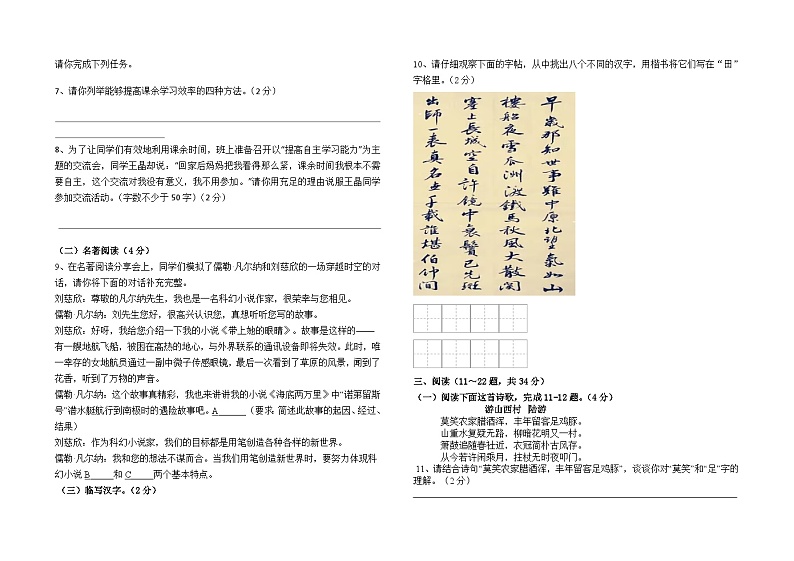 请你完成下列任务。
7、请你列举能够提高课余学习效率的四种方法。(2 分)
8、为了让同学们有效地利用课余时间，班上准备召开以"提高自主学习能力"为主
题的交流会，同学王晶却说："回家后妈妈把我看得那么紧，课余时间我根本不需
要自主，这个交流对我没有意义，我不用参加。"请你用充足的理由说服王晶同学
参加交流活动。(字数不少于 50 字)(2 分)
（二）名著阅读（4 分）
9、在名著阅读分享会上，同学们模拟了儒勒·凡尔纳和刘慈欣的一场穿越时空的对
话，请你将下面的对话补充完整。
刘慈欣：尊敬的凡尔纳先生，我也是一名科幻小说作家，很荣幸与您相见。
儒勒·凡尔纳：刘先生您好，很高兴认识您，真想听听您写的故事。
刘慈欣：好呀，我给您介绍一下我的小说《带上她的眼睛》。故事是这样的——
有一艘地航飞船，被困在高热的地心，与外界联系的通讯设备即将失效。此时，唯
一幸存的女地航员通过一副中微子传感眼镜，最后一次看到了草原的风景，闻到了
花香，听到了万物的声音。
儒勒·凡尔纳：这个故事真精彩，我也来讲讲我的小说《海底两万里》中"诺第留斯
号"潜水艇航行到南极时的遇险故事吧。A______（要求：简述此故事的起因、经过、
结果）
刘慈欣：作为科幻小说家，我们的目标都是用笔创造各种各样的新世界。
儒勒·凡尔纳：我和您的想法不谋而合。当我们用笔创造新世界时，要努力体现科
幻小说 B_____和 C_____两个基本特点。
（三）临写汉字。(2 分)
10、请仔细观察下面的字帖，从中挑出八个不同的汉字，用楷书将它们写在"田"
字格里。（2 分）
早岁那知世事难中原北望气如山
楼船夜雪瓜洲渡铁马秋风大散关
塞上长城空自许镜中衰鬓已先斑
出师一表真名世千载谁堪伯仲间
三、阅读（11～22 题，共 34 分）
（一）阅读下面这首诗歌，完成 11-12 题。（4 分）
游山西村 陆游
莫笑农家腊酒浑，丰年留客足鸡豚。
山重水复疑无路，柳暗花明又一村。
箫鼓追随春社近，衣冠简朴古风存。
从今若许闲乘月，拄杖无时夜叩门。
11、请结合诗句"莫笑农家腊酒浑，丰年留客足鸡豚"，谈谈你对"莫笑"和"足"字的
理解。（2 分）